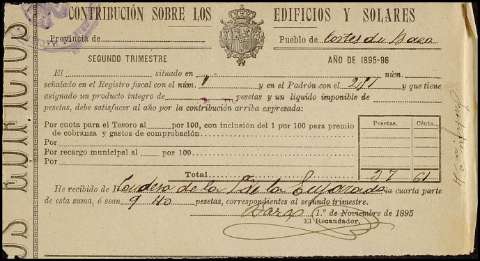 CONTRIBUCIÓN SOBRE LOS EDIFICIOS Y SOLARES
Provincia de Pueblo de Cortes de Baza
SEGUNDO TRIMESTRE AÑO DE 1895-96
El situado en núm.
señalado en el Registro fiscal con el núm. y en el Padrón con el 247 y que tiene
asignado un producto íntegro de pesetas y un líquido imponible de
pesetas, debe satisfacer al año por la contribución arriba expresada:
Pesetas. Cénts.
Por cuota para el Tesoro al por 100, con inclusión del 1 por 100 para premio
de cobranza y gastos de comprobación.
Por
Por recargo municipal al por 100.
Por
Total 37 61
He recibido de de la la cuarta parte
de esta suma, ó sean 9 40 pesetas, correspondientes al segundo trimestre.
1.º de Noviembre de 1895
El Recaudador,
OS EDIFICIOS